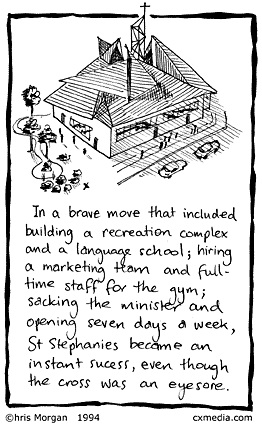 In a brave move that included
building a recreation complex
and a language school; hiring
a marketing team and full-
time staff for the gym;
sacking the minister and
opening seven days a week,
St Stephanies became an
instant sucess, even though
the cross was an eyesore.
©hris Morgan 1994
cxmedia.com